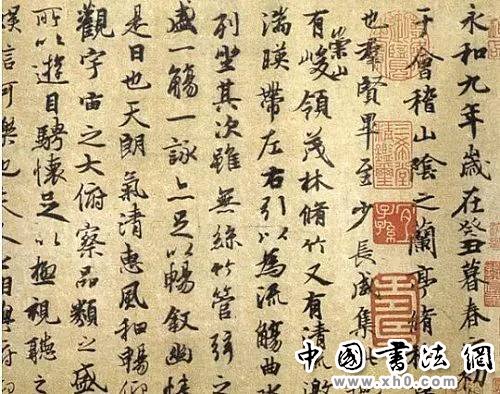 永和九年歲在癸丑暮春
于會稽山陰之蘭亭脩禊
也羣賢畢至少長咸集此
有崇山峻領茂林脩竹又有清流激
湍暎帶左右引以為流觴曲水
列坐其次雖無絲竹管弦之
盛一觴一詠亦足以暢敘幽情
是日也天朗氣清惠風和暢仰
觀宇宙之大俯察品類之盛
所以遊目騁懷足以極視聽之
娛信可樂也夫人之相與俯仰
中國書法網
www.xh0.com